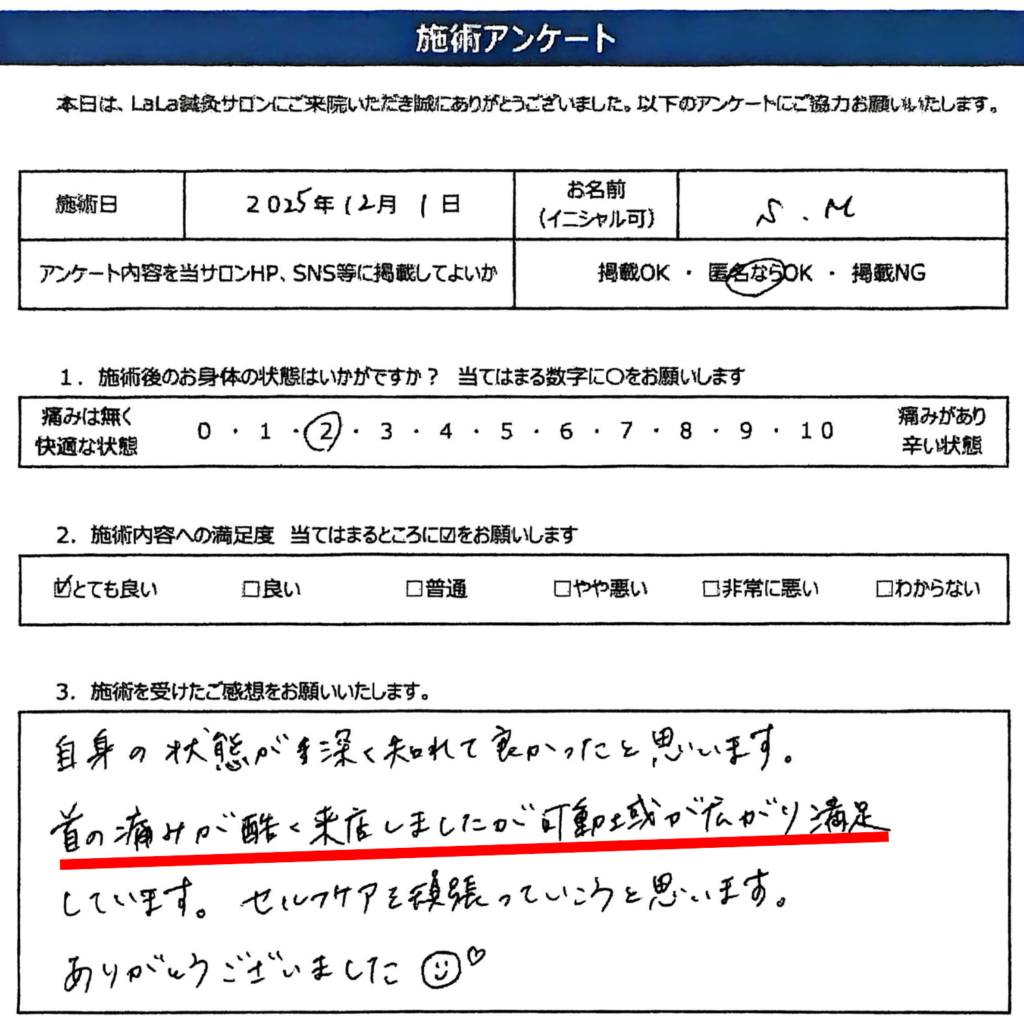 施術アンケート
本日は、LaLa鍼灸サロンにご来院いただき誠にありがとうございました。以下のアンケートにご協力お願いいたします。
施術日 2025年12月1日 お名前(イニシャル可) S.M
アンケート内容を当サロンHP、SNS等に掲載してよいか 掲載OK ・ 匿名ならOK ・ 掲載NG
1. 施術後のお身体の状態はいかがですか? 当てはまる数字に○をお願いします
痛みは無く快適な状態 0 ・ 1 ・ 2 ・ 3 ・ 4 ・ 5 ・ 6 ・ 7 ・ 8 ・ 9 ・ 10 痛みがあり辛い状態
2. 施術内容への満足度 当てはまるところに☑をお願いします
☑とても良い □良い □普通 □やや悪い □非常に悪い □わからない
3. 施術を受けたご感想をお願いいたします。
自身の状態が深く知れて良かったと思います。
首の痛みが酷く来店しましたが可動域が広がり満足
しています。セルフケアを頑張っていこうと思います。
ありがとうございました